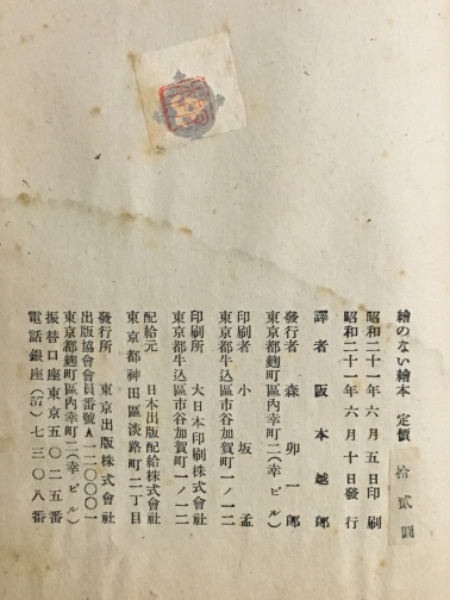 繪のない繪本 定價 拾貳圓
昭和二十一年六月五日印刷
昭和二十一年六月十日發行
譯者 阪本越郎
發行者 森卯一郎
東京都麴町區內幸町二(幸ビル)
印刷者 小坂孟
東京都牛込區市谷加賀町一ノ一二
印刷所 大日本印刷株式會社
東京都牛込區市谷加賀町一ノ一二
配給元 日本出版配給株式會社
東京都神田區淡路町二丁目
發行所 東京出版株式會社
出版協會會員番號A一二〇〇〇一
東京都麴町區內幸町二(幸ビル)
振替口座東京五〇二五番
電話銀座(57)七三〇八番